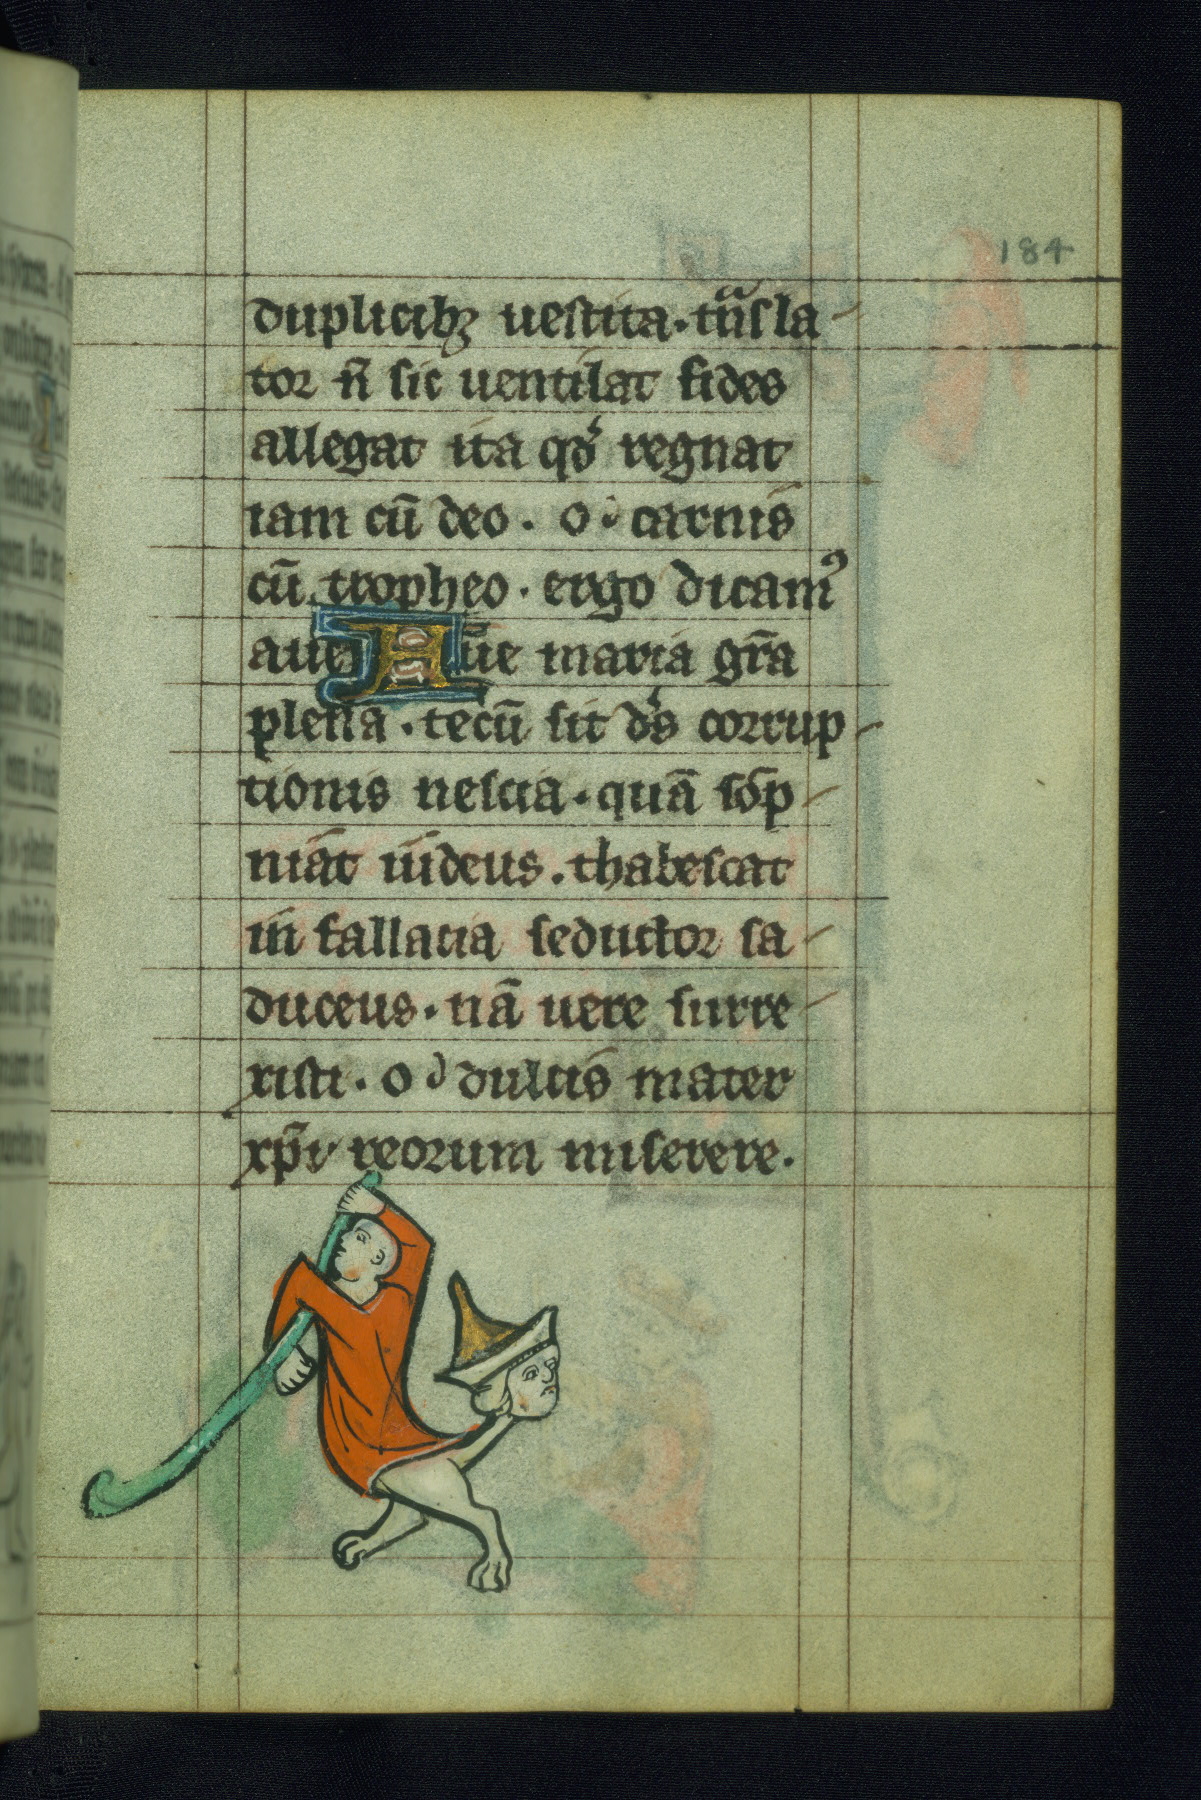 184
duplicibꝫ uestita · tᷓnsla-
tor n̄ sic uentilat fides
allegat ita qd́ regnat
iam cū deo . o · carnis
cū tropheo · ergo dicamꝰ
aue Aue maria gr̄a
plena · tecū sit dn̄s corrup-
tionis nescia · quā sōp-
niat iudeus . thabescat
in fallacia seductor sa-
duceus · nā uere surre-
xisti · o dulcis mater
xp̄i reorum miserere .